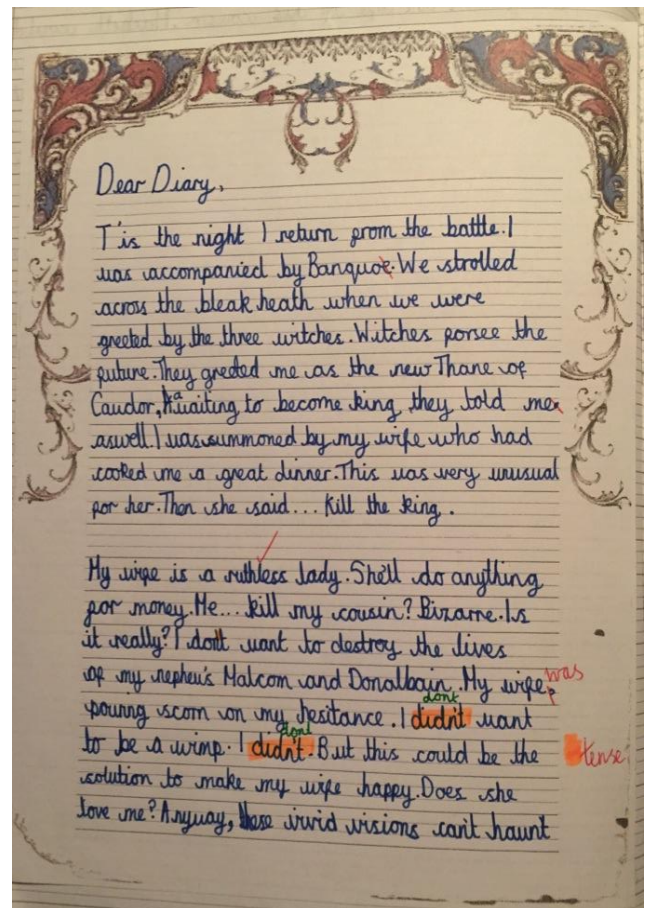 Dear Diary,
T'is the night I return from the battle. I
was accompanied by Banquoe. We strolled
across the bleak heath when we were
greeted by the three witches. Witches forsee the
future. They greeted me as the new Thane of
Caudor, Awaiting to become king they told me
aswell. I was summoned by my wife who had
cooked me a great dinner. This was very unusual
for her. Then she said... Kill the king.
My wife is a ruthless lady. She'll do anything
for money. Me... kill my cousin? Bizarre. Is
it really? I don't want to destroy the lives
of my nephew's Malcom and Donalbain. My wife was
pouring scorn on my hesitance. I didn't dont want
to be a wimp. I didn't dont. But this could be the tense
solution to make my wife happy. Does she
love me? Anyway, these vivid visions can't haunt